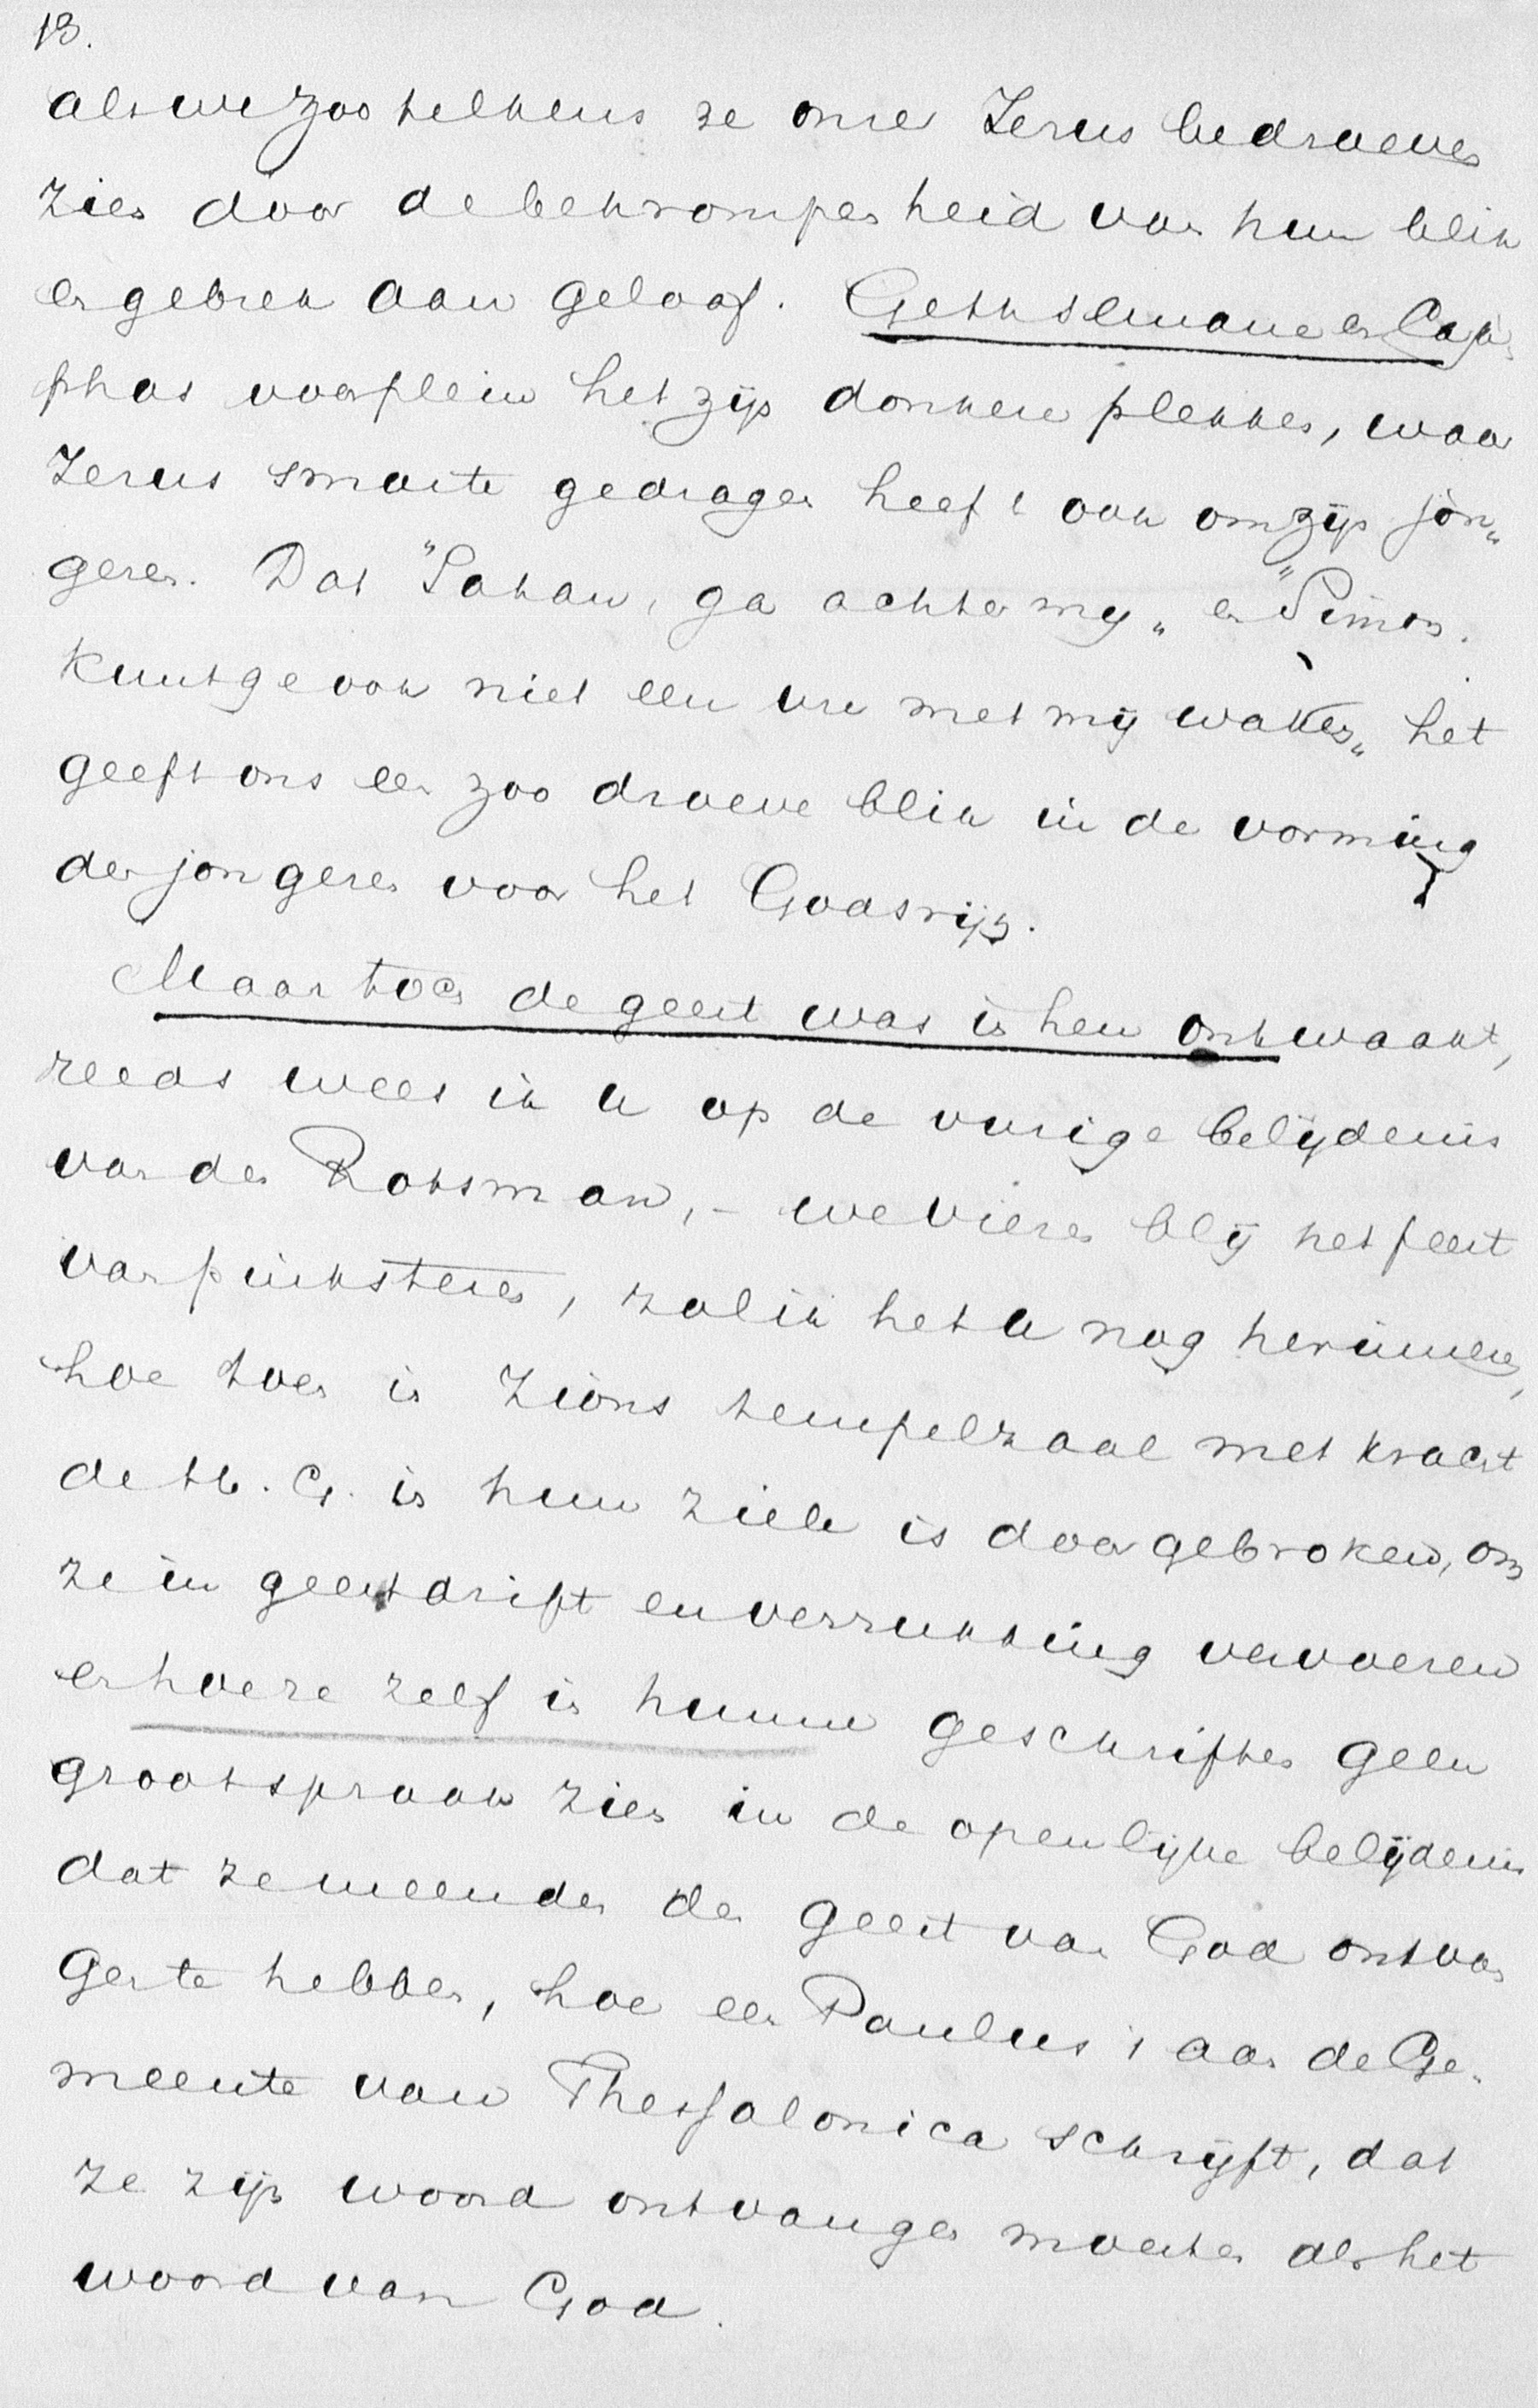 13.
als we zoo telkens ze onze Jezus bedroeven
zien door de bekrompenheid van hun blik
en gebrek aan geloof. Gethsemane en Caja„
phas voorplein het zijn donkere plekken, waar
Jezus smarte gedragen heeft ook om zijn jon„
geren. Dat "Satan, ga achter mij„ en "Simon.
kunt ge ook niet een ure met mij waken„ het
geeft ons een zoo droeve blik in de vorming
der jongeren voor het Godsrijk.
Maar toch de geest was in hen ontwaakt,
reeds wees ik U op de vurige belijdenis
van den Rotsman, - we vieren blij het feest
van pinksteren, zal ik het U nog herinneren,
hoe toen in Zions tempelzaal met kracht
de H. G. in hun ziele is doorgebroken, om
ze in geestdrift en verrukking vervoeren
en hoe ze zelf in hunne geschriften geen
grootspraak zien in de openlijke belijdenis
dat ze meenden den geest van God ontvan
gen te hebben, hoe een Paulus, aan de Ge„
meente van Thessalonica schrijft, dat
ze zijn woord ontvangen moesten als het
woord van God.